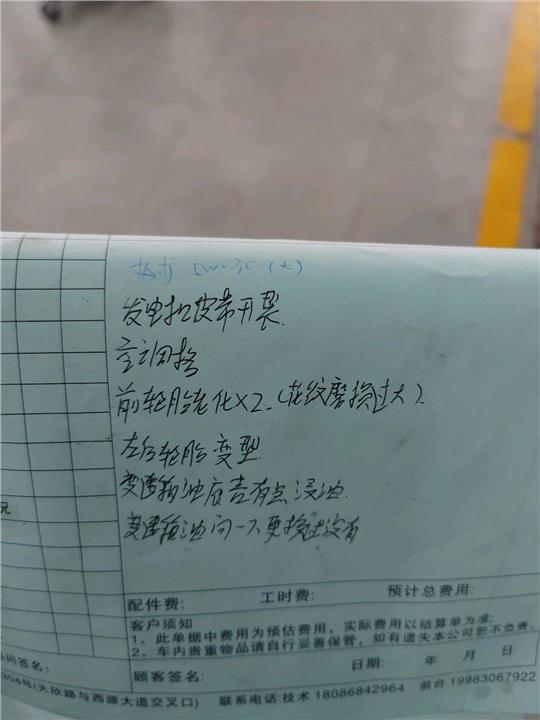 5W-30(大)
发电机皮带开裂
空调格
前轮胎老化×2.(花纹磨损过大).
左后轮胎变型
变速箱油底壳有点浸油.
变速箱油问一下更换过没有
况
配件费: 工时费: 预计总费用:
客户须知
1、此单据中费用为预估费用，实际费用以结算单为准;
2、车内贵重物品请自行妥善保管，如有遗失本公司恕不负责.
顾问签名: 顾客签名: 日期: 年 月 日
304号(天欣路与西源大道交叉口) 联系电话:技术 18086842964 前台 19983067922